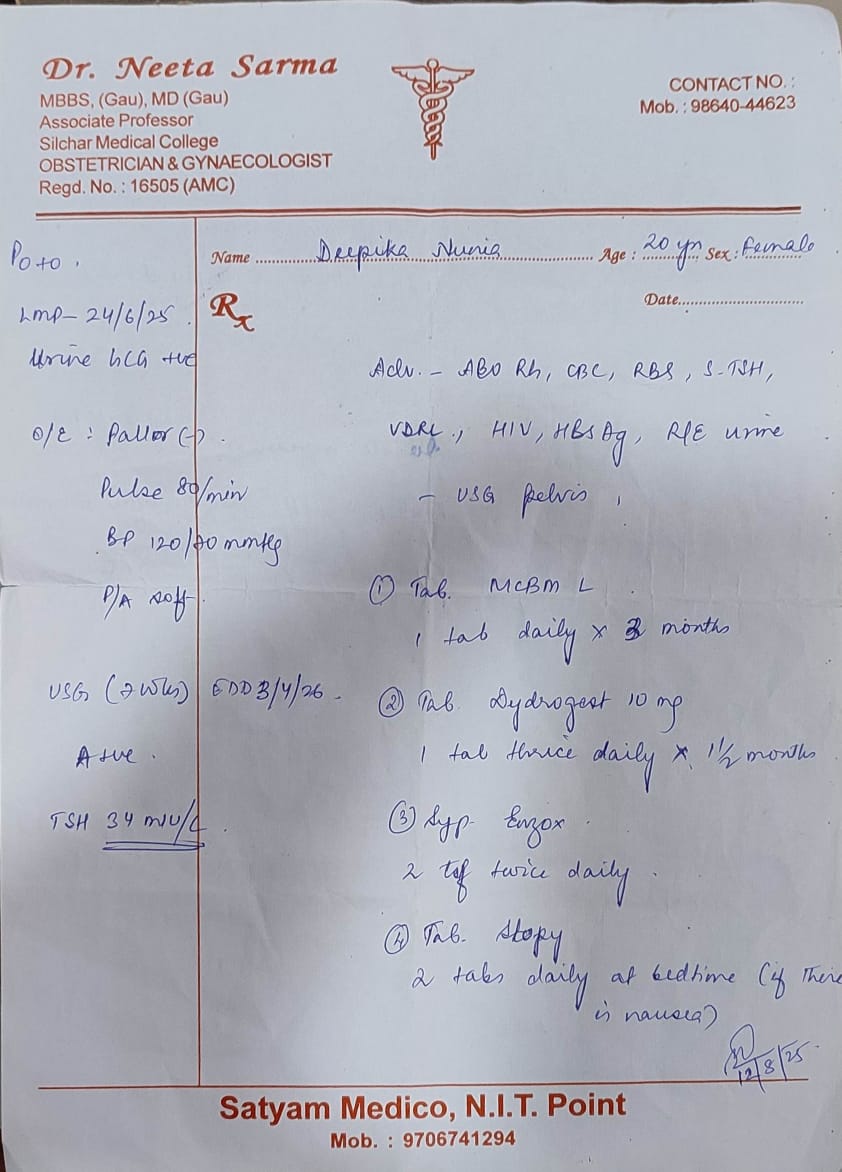 Dr. Neeta Sarma
MBBS, (Gau), MD (Gau)
Associate Professor
Silchar Medical College
OBSTETRICIAN & GYNAECOLOGIST
Regd. No. : 16505 (AMC)
CONTACT NO. :
Mob. : 98640-44623
Name Deepika Nunia Age : 20 yrs Sex : Female
Rx
Date
P0+0.
LMP- 24/6/25.
Urine hCG +ve
O/E : Pallor (-).
Pulse 80/min
BP 120/80 mmHg
P/A soft.
USG (7 wks) EDD 3/4/26.
A +ve.
TSH 34 mIU/L.
Adv. - ABO Rh, CBC, RBS, S-TSH,
VDRL, HIV, HBsAg, R/E urine
- USG pelvis,
① Tab. MCBM L
1 tab daily x months
② Tab. Dydrogest 10 mg
1 tab thrice daily x 1 1/2 months
③ Syp. Enzox
2 tsf twice daily.
④ Tab. Stopy
2 tabs daily at bedtime (if there
is nausea)
12/8/25
Satyam Medico, N.I.T. Point
Mob. : 9706741294